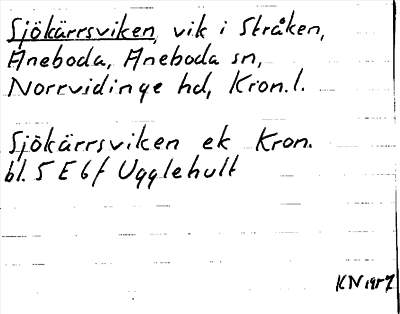 Sjökärrsviken, vik i Stråken,
Aneboda, Aneboda sn,
Norrvidinge hd, Kron.l.
Sjökärrsviken ek Kron.
bl. 5 E 6f Ugglehult
KN 1957